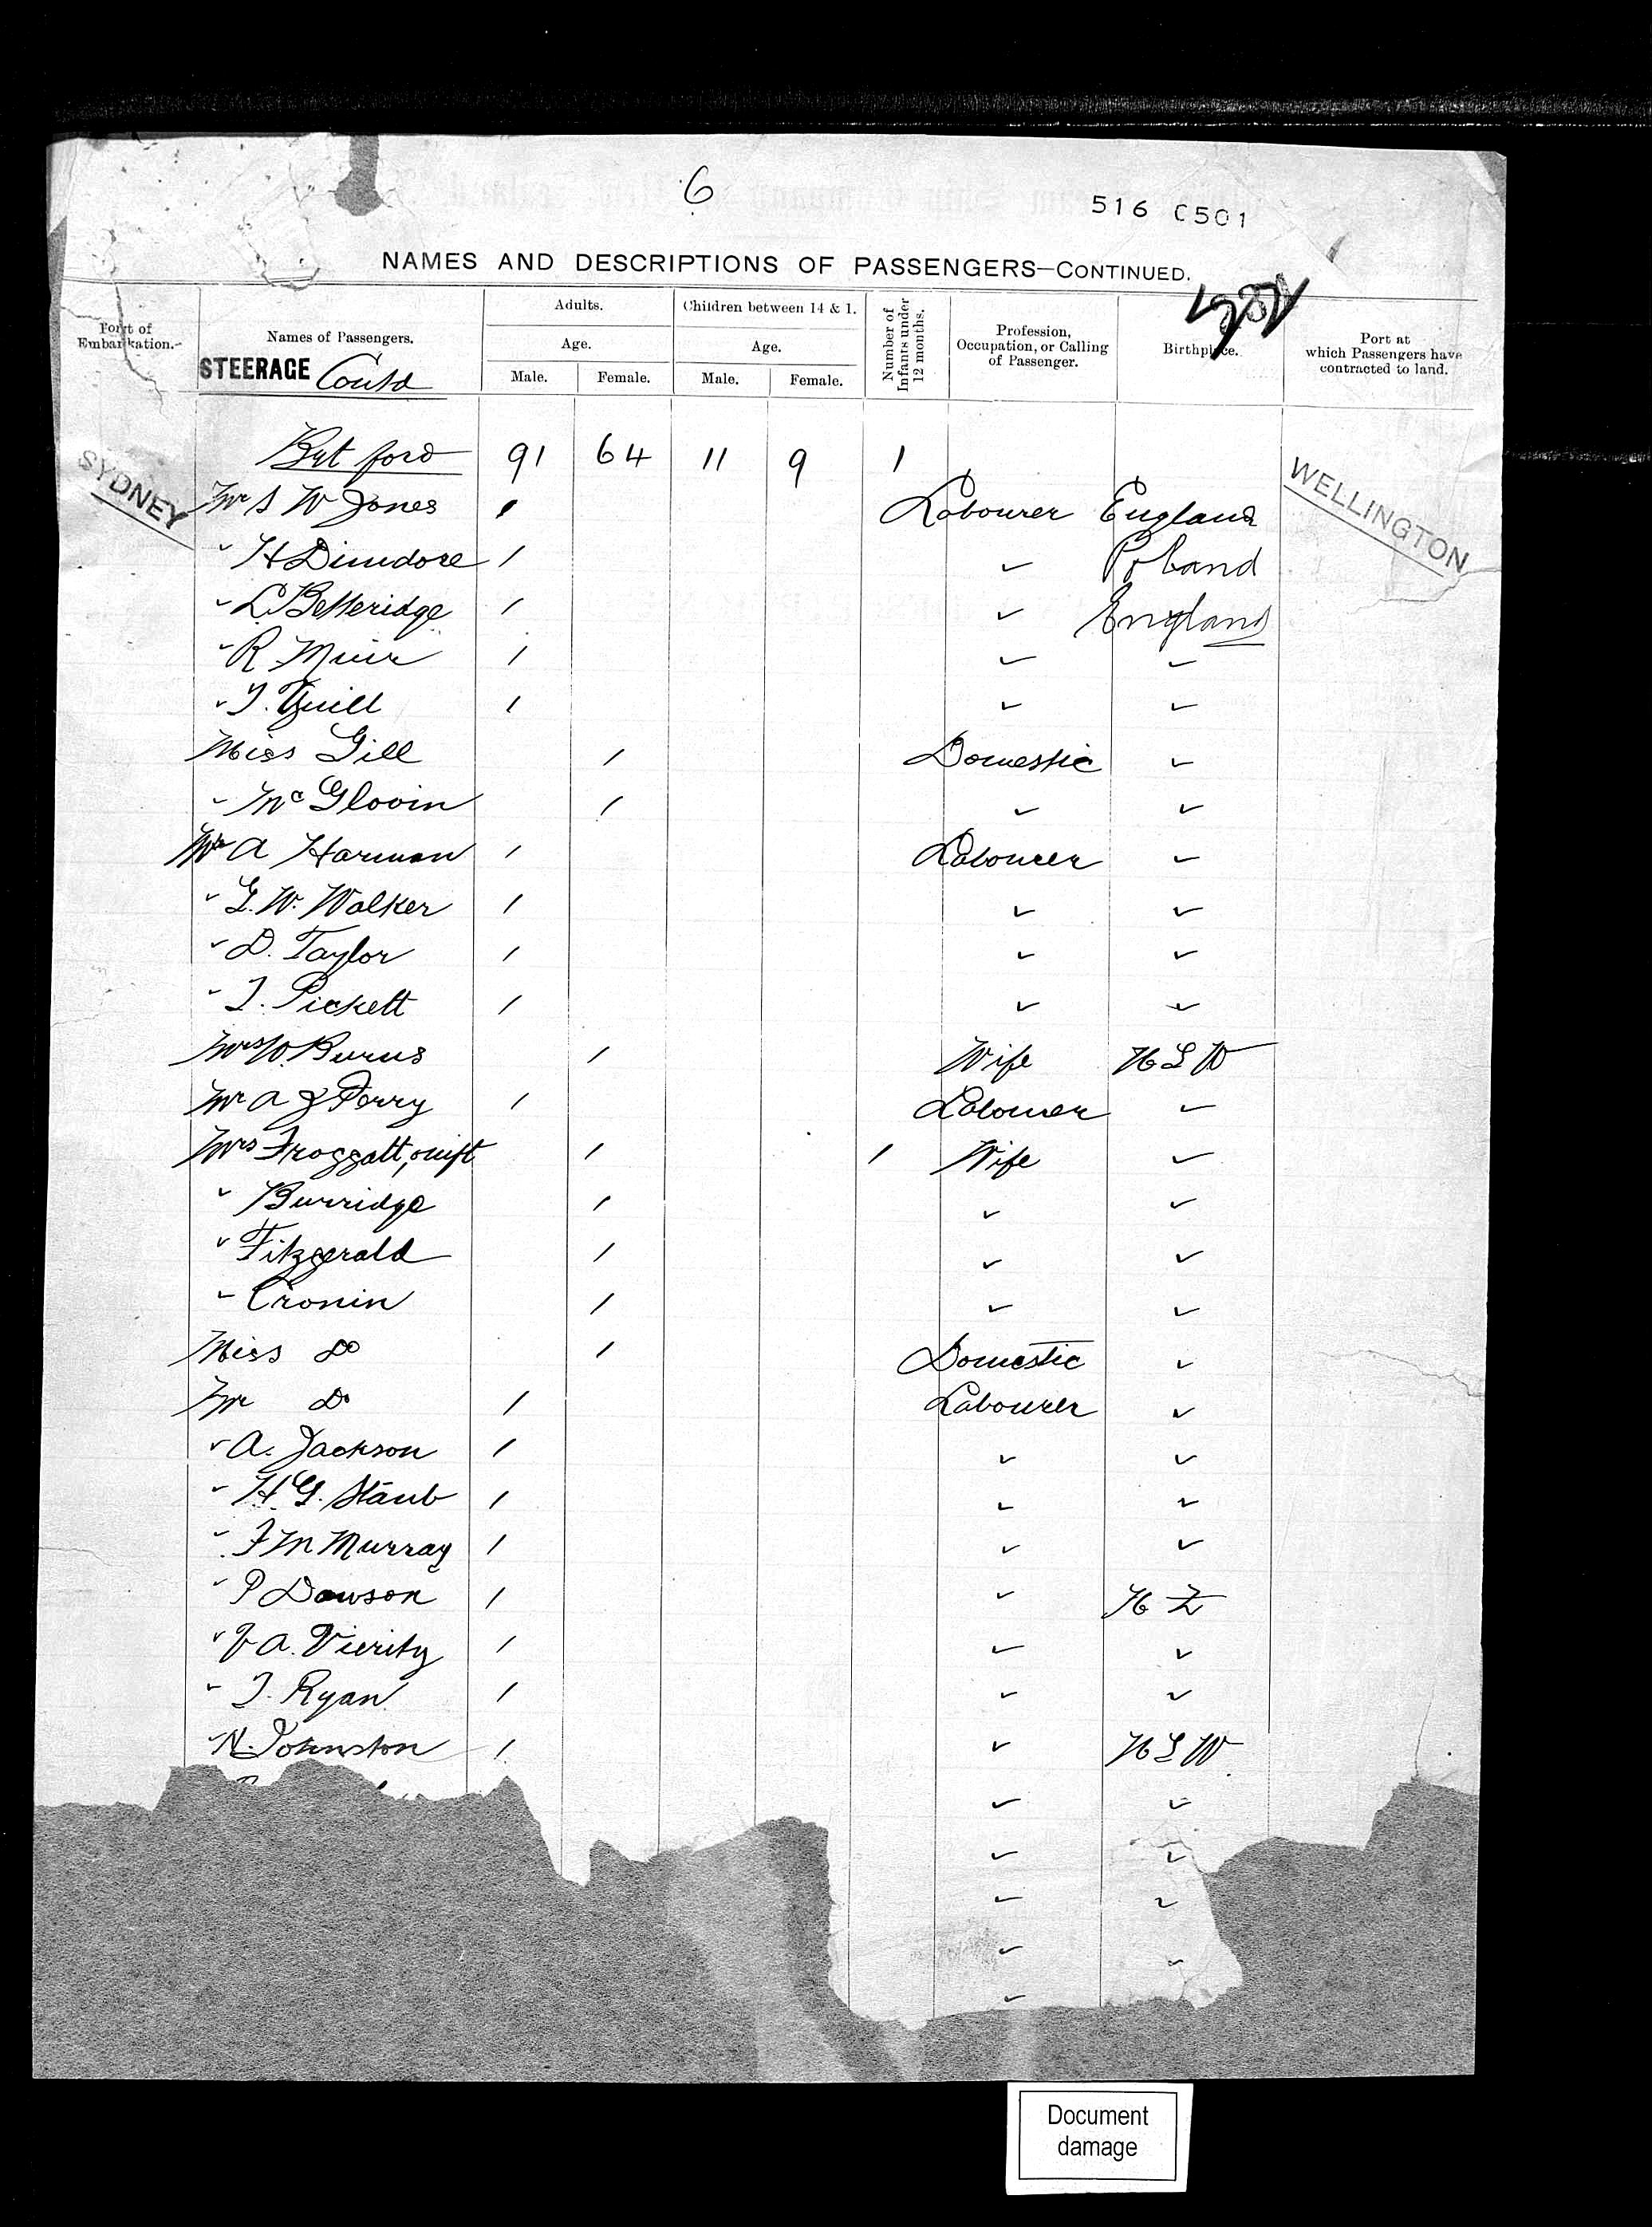 6
516 C501
NAMES AND DESCRIPTIONS OF PASSENGERS—CONTINUED.
Port of Embarkation.
Names of Passengers.
STEERAGE Contd
Adults.
Age.
Male. Female.
Children between 14 & 1.
Age.
Male. Female.
Number of Infants under 12 months.
Profession, Occupation, or Calling of Passenger.
Birthplace.
Port at which Passengers have contracted to land.
SYDNEY
WELLINGTON
Brt ford 91 64 11 9 1
Mr S W Jones 1 Labourer England
" H Dimdore 1 " Poland
" L Betteridge 1 " England
" R Muir 1 " "
" T. 1 " "
Miss Gill 1 Domestic "
" McGlovin 1 " "
Mr A Harman 1 Labourer "
" G. W. Walker 1 " "
" D. Taylor 1 " "
" J. Pickett 1 " "
Mrs W. Burns 1 Wife N S W
Mr A J Perry 1 Labourer "
Mrs Froggatt, & inft 1 1 Wife "
" Burridge 1 " "
" Fitzgerald 1 " "
" Cronin 1 " "
Miss Do 1 Domestic "
Mr Do 1 Labourer "
" A. Jackson 1 " "
" H. G. Staub 1 " "
" F M Murray 1 " "
" P Dawson 1 " N Z
" A. Vierity 1 " "
" J. Ryan 1 " "
" N. Johnston 1 " N S W
" "
" "
" "
" "
"
Document
damage